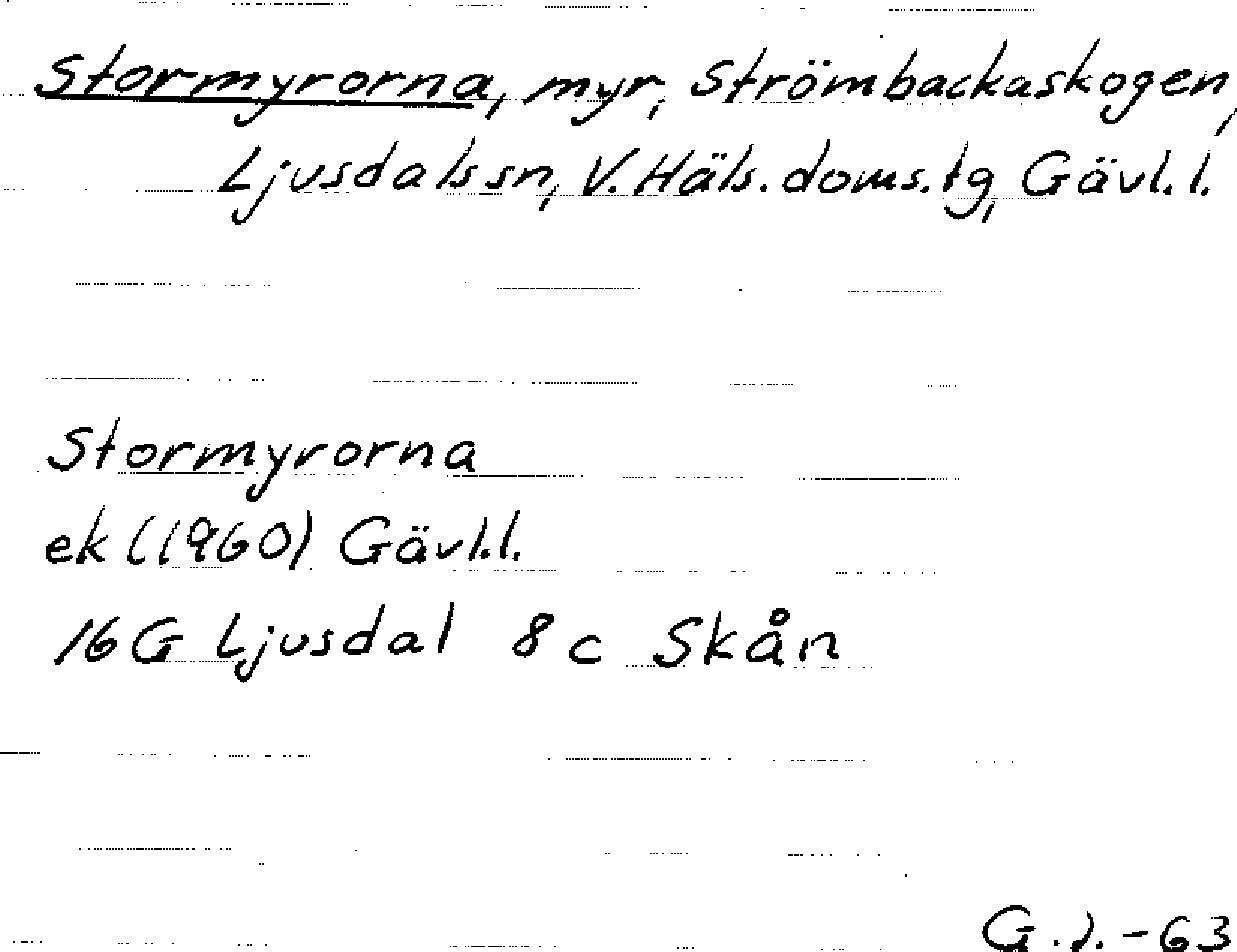 Stormyrorna, myr, Strömbackaskogen,
Ljusdals sn, V. Häls. doms. tg, Gävl. l.
Stormyrorna
ek (1960) Gävl. l.
16 G Ljusdal 8 c Skån
-63